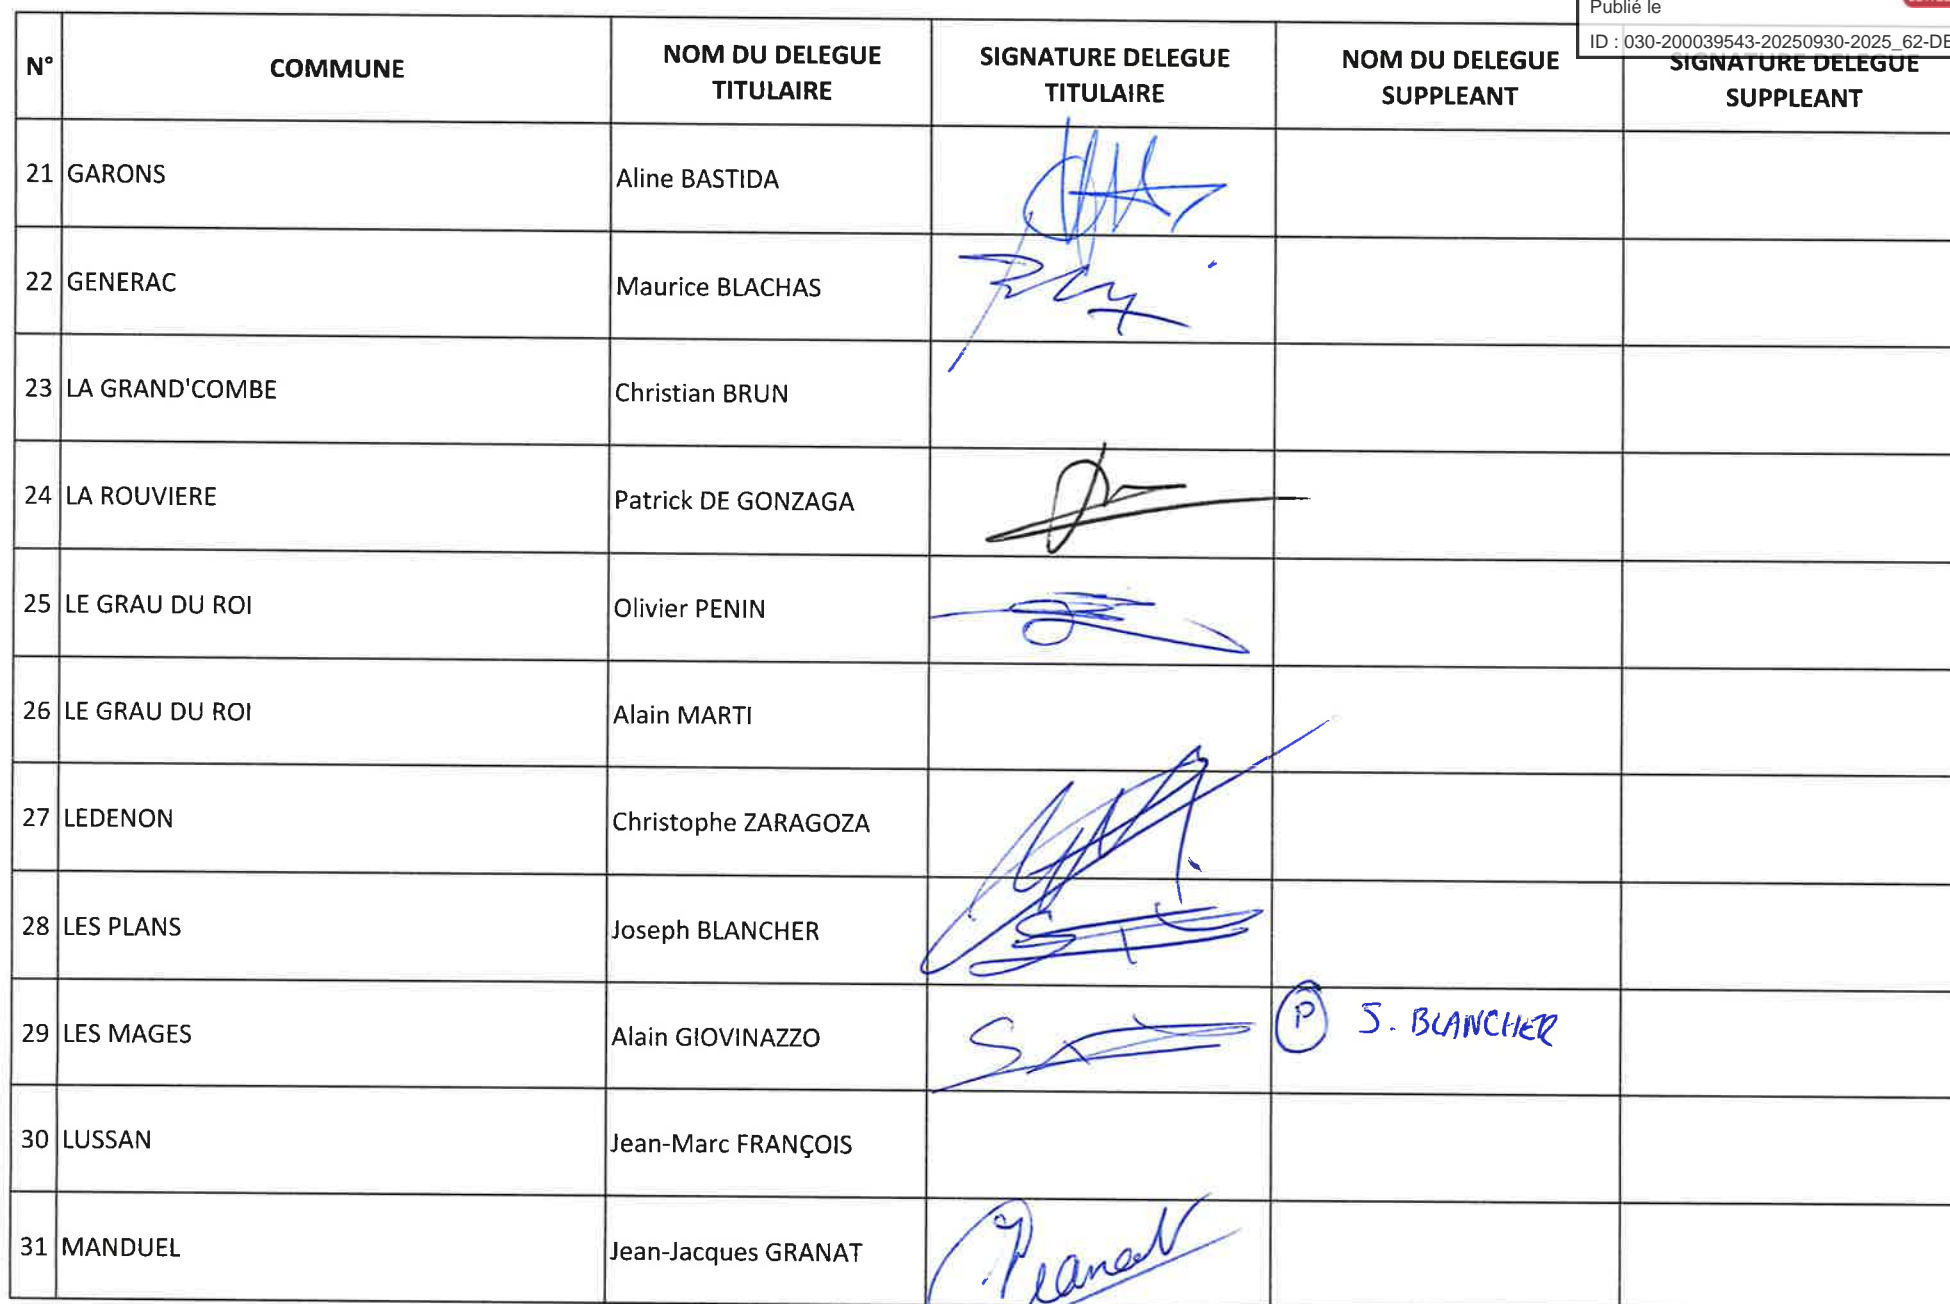 Publié le
ID : 030-200039543-20250930-2025_62-DE
N° COMMUNE NOM DU DELEGUE TITULAIRE SIGNATURE DELEGUE TITULAIRE NOM DU DELEGUE SUPPLEANT SIGNATURE DELEGUE SUPPLEANT
21 GARONS Aline BASTIDA
22 GENERAC Maurice BLACHAS
23 LA GRAND'COMBE Christian BRUN
24 LA ROUVIERE Patrick DE GONZAGA
25 LE GRAU DU ROI Olivier PENIN
26 LE GRAU DU ROI Alain MARTI
27 LEDENON Christophe ZARAGOZA
28 LES PLANS Joseph BLANCHER
29 LES MAGES Alain GIOVINAZZO P J. BLANCHER
30 LUSSAN Jean-Marc FRANÇOIS
31 MANDUEL Jean-Jacques GRANAT